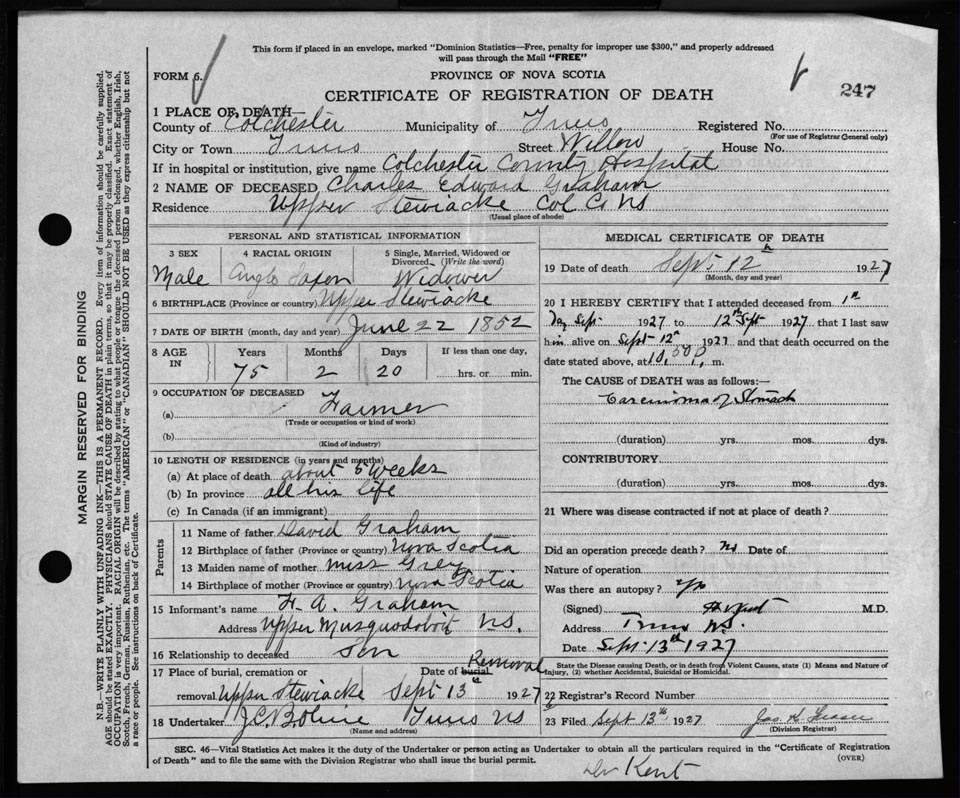 This form if placed in an envelope, marked "Dominion Statistics—Free, penalty for improper use $300," and properly addressed
will pass through the Mail "FREE"
FORM 6.
PROVINCE OF NOVA SCOTIA
247
CERTIFICATE OF REGISTRATION OF DEATH
1 PLACE OF DEATH—
County of Colchester Municipality of Truro Registered No.
(For use of Registrar General only)
City or Town Truro Street Willow House No.
If in hospital or institution, give name Colchester County Hospital
2 NAME OF DECEASED Charles Edward Graham
Residence Upper Stewiacke Col. Co. NS
(Usual place of abode)
PERSONAL AND STATISTICAL INFORMATION
3 SEX 4 RACIAL ORIGIN 5 Single, Married, Widowed or
Divorced (Write the word)
Male Anglo Saxon Widower
6 BIRTHPLACE (Province or country) Upper Stewiacke
7 DATE OF BIRTH (month, day and year) June 22 1852
8 AGE IN Years Months Days If less than one day,
75 2 20 hrs. or min.
9 OCCUPATION OF DECEASED
(a) Farmer
(Trade or occupation or kind of work)
(b)
(Kind of industry)
10 LENGTH OF RESIDENCE (in years and months)
(a) At place of death about 5 weeks
(b) In province all his life
(c) In Canada (if an immigrant)
Parents
11 Name of father David Graham
12 Birthplace of father (Province or country) Nova Scotia
13 Maiden name of mother Miss Grey
14 Birthplace of mother (Province or country) Nova Scotia
15 Informant's name H. A. Graham
Address Upper Musquodoboit NS.
16 Relationship to deceased Son
17 Place of burial, cremation or Date of burial Removal
removal Upper Stewiacke Sept 13th 1927
18 Undertaker Truro NS
(Name and address)
MEDICAL CERTIFICATE OF DEATH
19 Date of death Sept 12 1927
(Month, day and year)
20 I HEREBY CERTIFY that I attended deceased from 1st
day Sept 1927 to 12th Sept 1927, that I last saw
him alive on Sept 12th 1927 and that death occurred on the
date stated above, at 10.50 p. m.
The CAUSE of DEATH was as follows:—
Carcinoma of Stomach
(duration) yrs. mos. dys.
CONTRIBUTORY
(duration) yrs. mos. dys.
21 Where was disease contracted if not at place of death?
Did an operation precede death? No Date of
Nature of operation
Was there an autopsy? No
(Signed) M.D.
Address Truro N.S.
Date Sept 13th 1927
State the Disease causing Death, or in death from Violent Causes, state (1) Means and Nature of
Injury, (2) whether Accidental, Suicidal or Homicidal.
22 Registrar's Record Number
23 Filed Sept 13th 1927
(Division Registrar)
SEC. 46—Vital Statistics Act makes it the duty of the Undertaker or person acting as Undertaker to obtain all the particulars required in the "Certificate of Registration
of Death" and to file the same with the Division Registrar who shall issue the burial permit.
(OVER)
Dr Kent
MARGIN RESERVED FOR BINDING
N.B.—WRITE PLAINLY WITH UNFADING INK—THIS IS A PERMANENT RECORD. Every item of information should be carefully supplied.
AGE should be stated EXACTLY. PHYSICIANS should STATE CAUSE OF DEATH in plain terms, so that it may be properly classified. Exact statement of
OCCUPATION is very important. RACIAL ORIGIN will be described by stating to what people or tongue the deceased person belonged, whether English, Irish,
Scotch, French, German, Russian, Ruthenian, etc. The terms "AMERICAN" or "CANADIAN" SHOULD NOT BE USED as they express citizenship but not
a race or people. See instructions on back of Certificate.